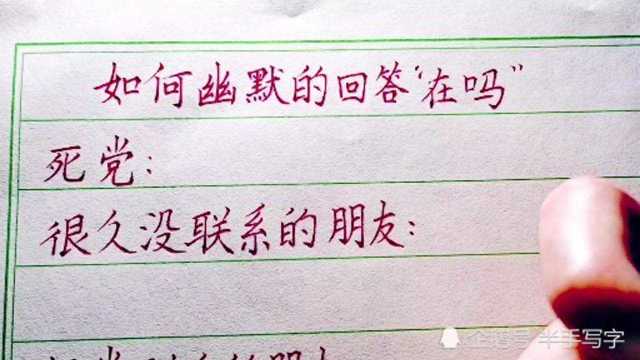 如何幽默的回答“在吗”
死党：
很久没联系的朋友：
企鹅号 半手写字